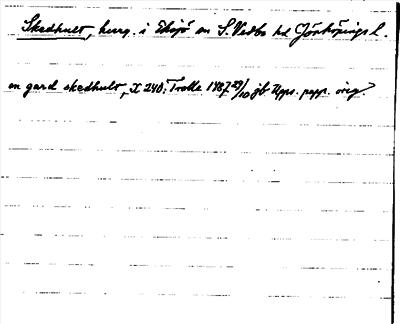 Skedhult, herrg. i Eksjö sn S. Vedbo hd Jönköpings l.
en gard skedhult, X 240: Trolle 1487 29/10 jb Upps. papp. orig.